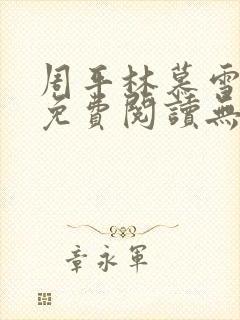 周平林慕雪
免費閱讀無
章永軍